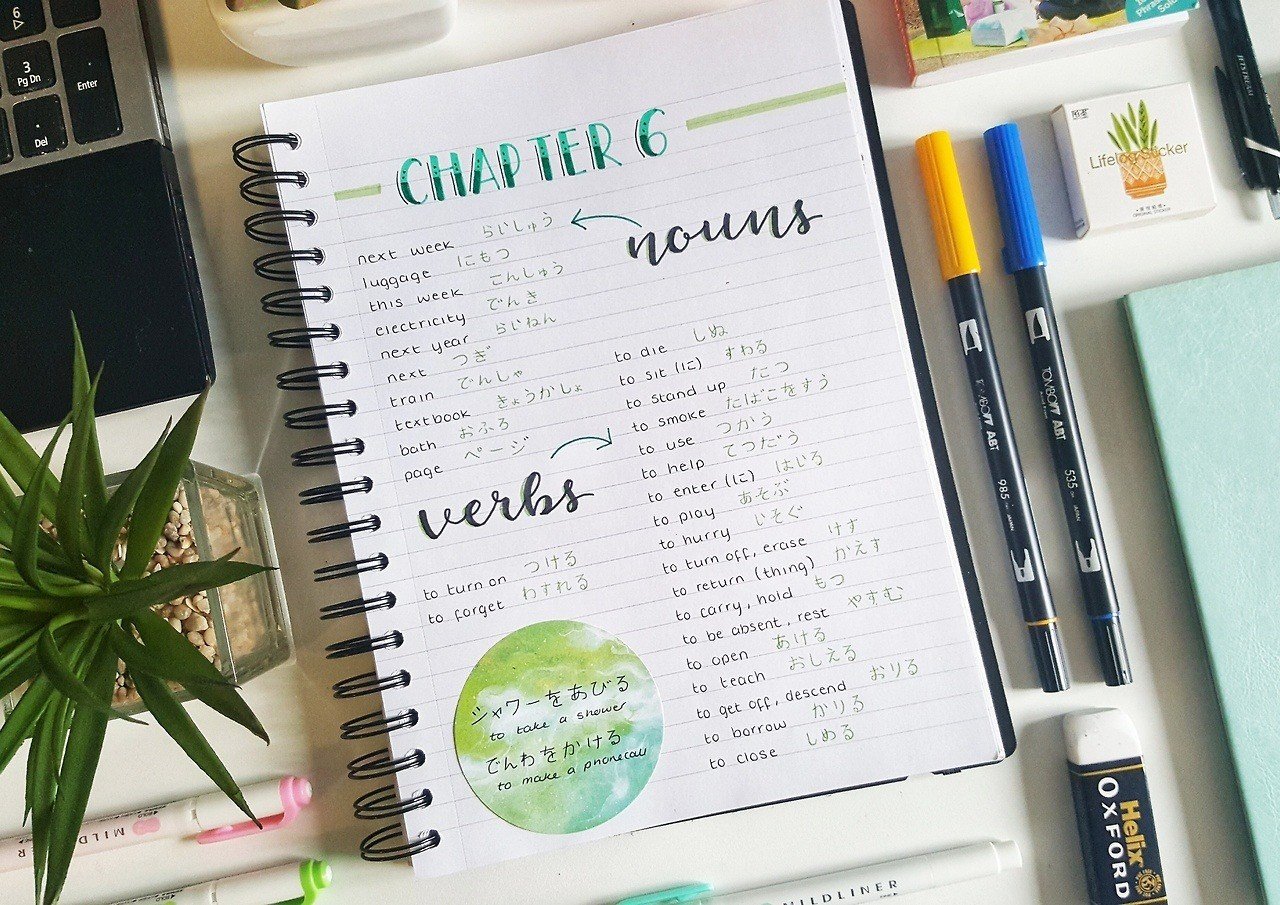 6
3
Pg Dn
Enter
Del
CHAPTER 6
nouns
next week らいしゅう
luggage にもつ
this week こんしゅう
electricity でんき
next year らいねん
next つぎ
train でんしゃ
textbook きょうかしょ
bath おふろ
page ページ
verbs
to turn on つける
to forget わすれる
to die しぬ
to sit (に) すわる
to stand up たつ
to smoke たばこをすう
to use つかう
to help てつだう
to enter (に) はいる
to play あそぶ
to hurry いそぐ
to turn off, erase けす
to return (thing) かえす
to carry, hold もつ
to be absent, rest やすむ
to open あける
to teach おしえる
to get off, descend おりる
to borrow かりる
to close しめる
シャワーをあびる
to take a shower
でんわをかける
to make a phonecall
Lifelog Sticker
ORIGINAL STICKER
JETSTREAM
TOMBOW ABT
985
JAPAN
TOMBOW ABT
535
JAPAN
Helix
OXFORD
MILD
R
MILDLINER